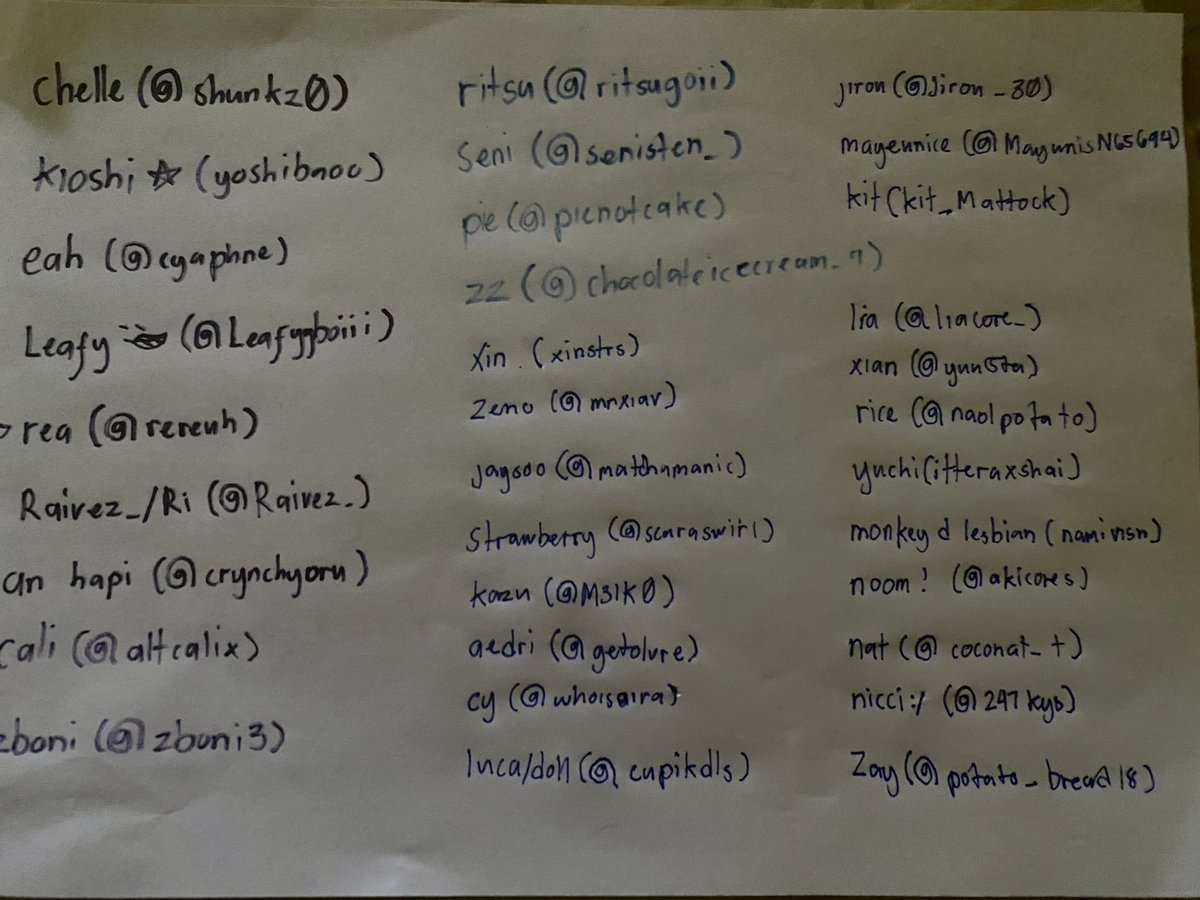 chelle (@shunkz0)
kioshi ☆ (yoshibaoc)
eah (@cyaphne)
Leafy (@Leafygboiii)
rea (@rereuh)
Raivez_/Ri (@Raivez_)
an hapi (@crynchyoru)
cali (@altcalix)
zboni (@zboni3)
ritsu (@ritsugoii)
seni (@senisten_)
pie (@pienotcake)
zz (@chocolateicecream_7)
xin. (xinstrs)
zeno (@mrxiav)
jagsoo (@matchamanic)
strawberry (@scaraswirl)
kazu (@M31K0)
aedri (@getolvre)
cy (@whoisaira)
luca/doll (@cupikdls)
jiron (@Jiron_30)
mayeunnice (@MayunisN65694)
kit (kit_Mattock)
lia (@liacore_)
xian (@yun5ta)
rice (@naolpotato)
yuchi (itteraxshai)
monkey d lesbian (namivism)
noom! (@akicores)
nat (@coconat_t)
nicci:/ (@247kys)
Zay (@potato_bread18)